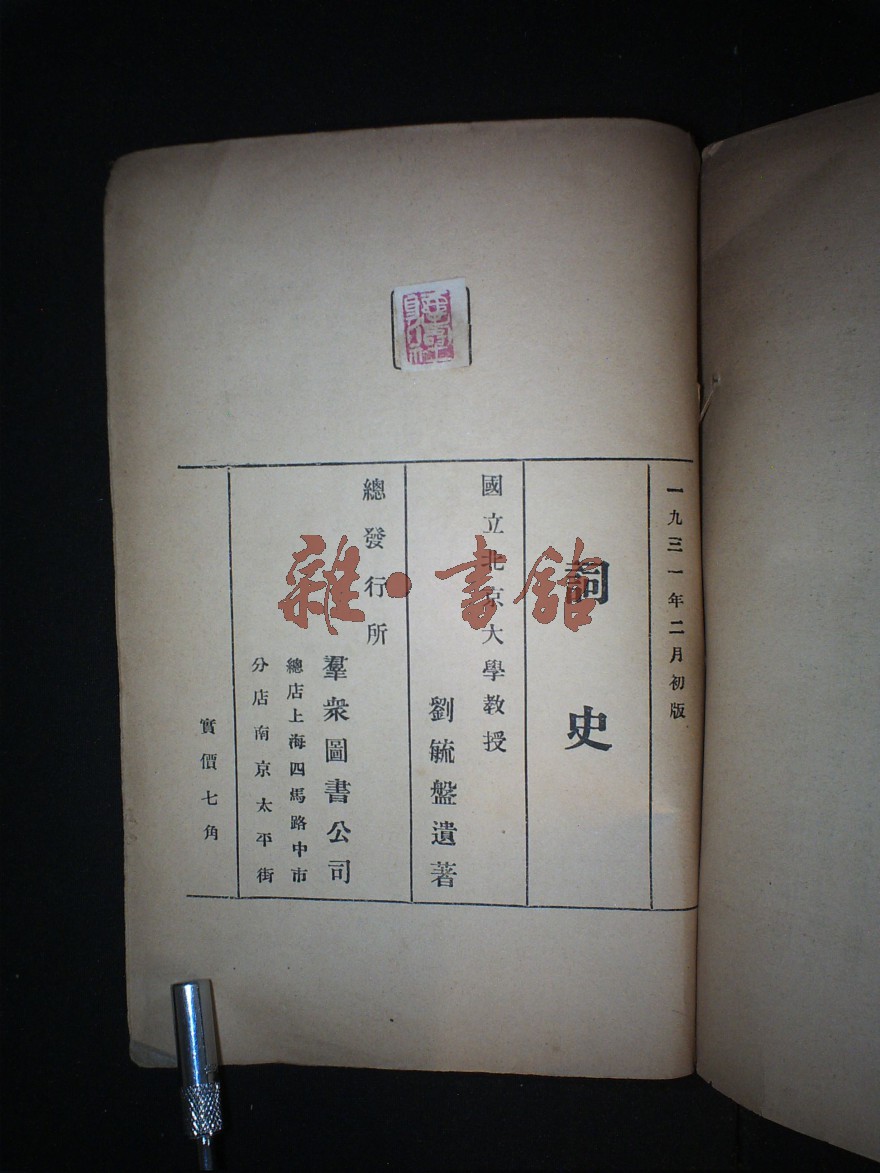 一九三一年二月初版
詞史
國立北京大學教授
劉毓盤遺著
總發行所
羣衆圖書公司
總店上海四馬路中市
分店南京太平街
實價七角
雜·書館